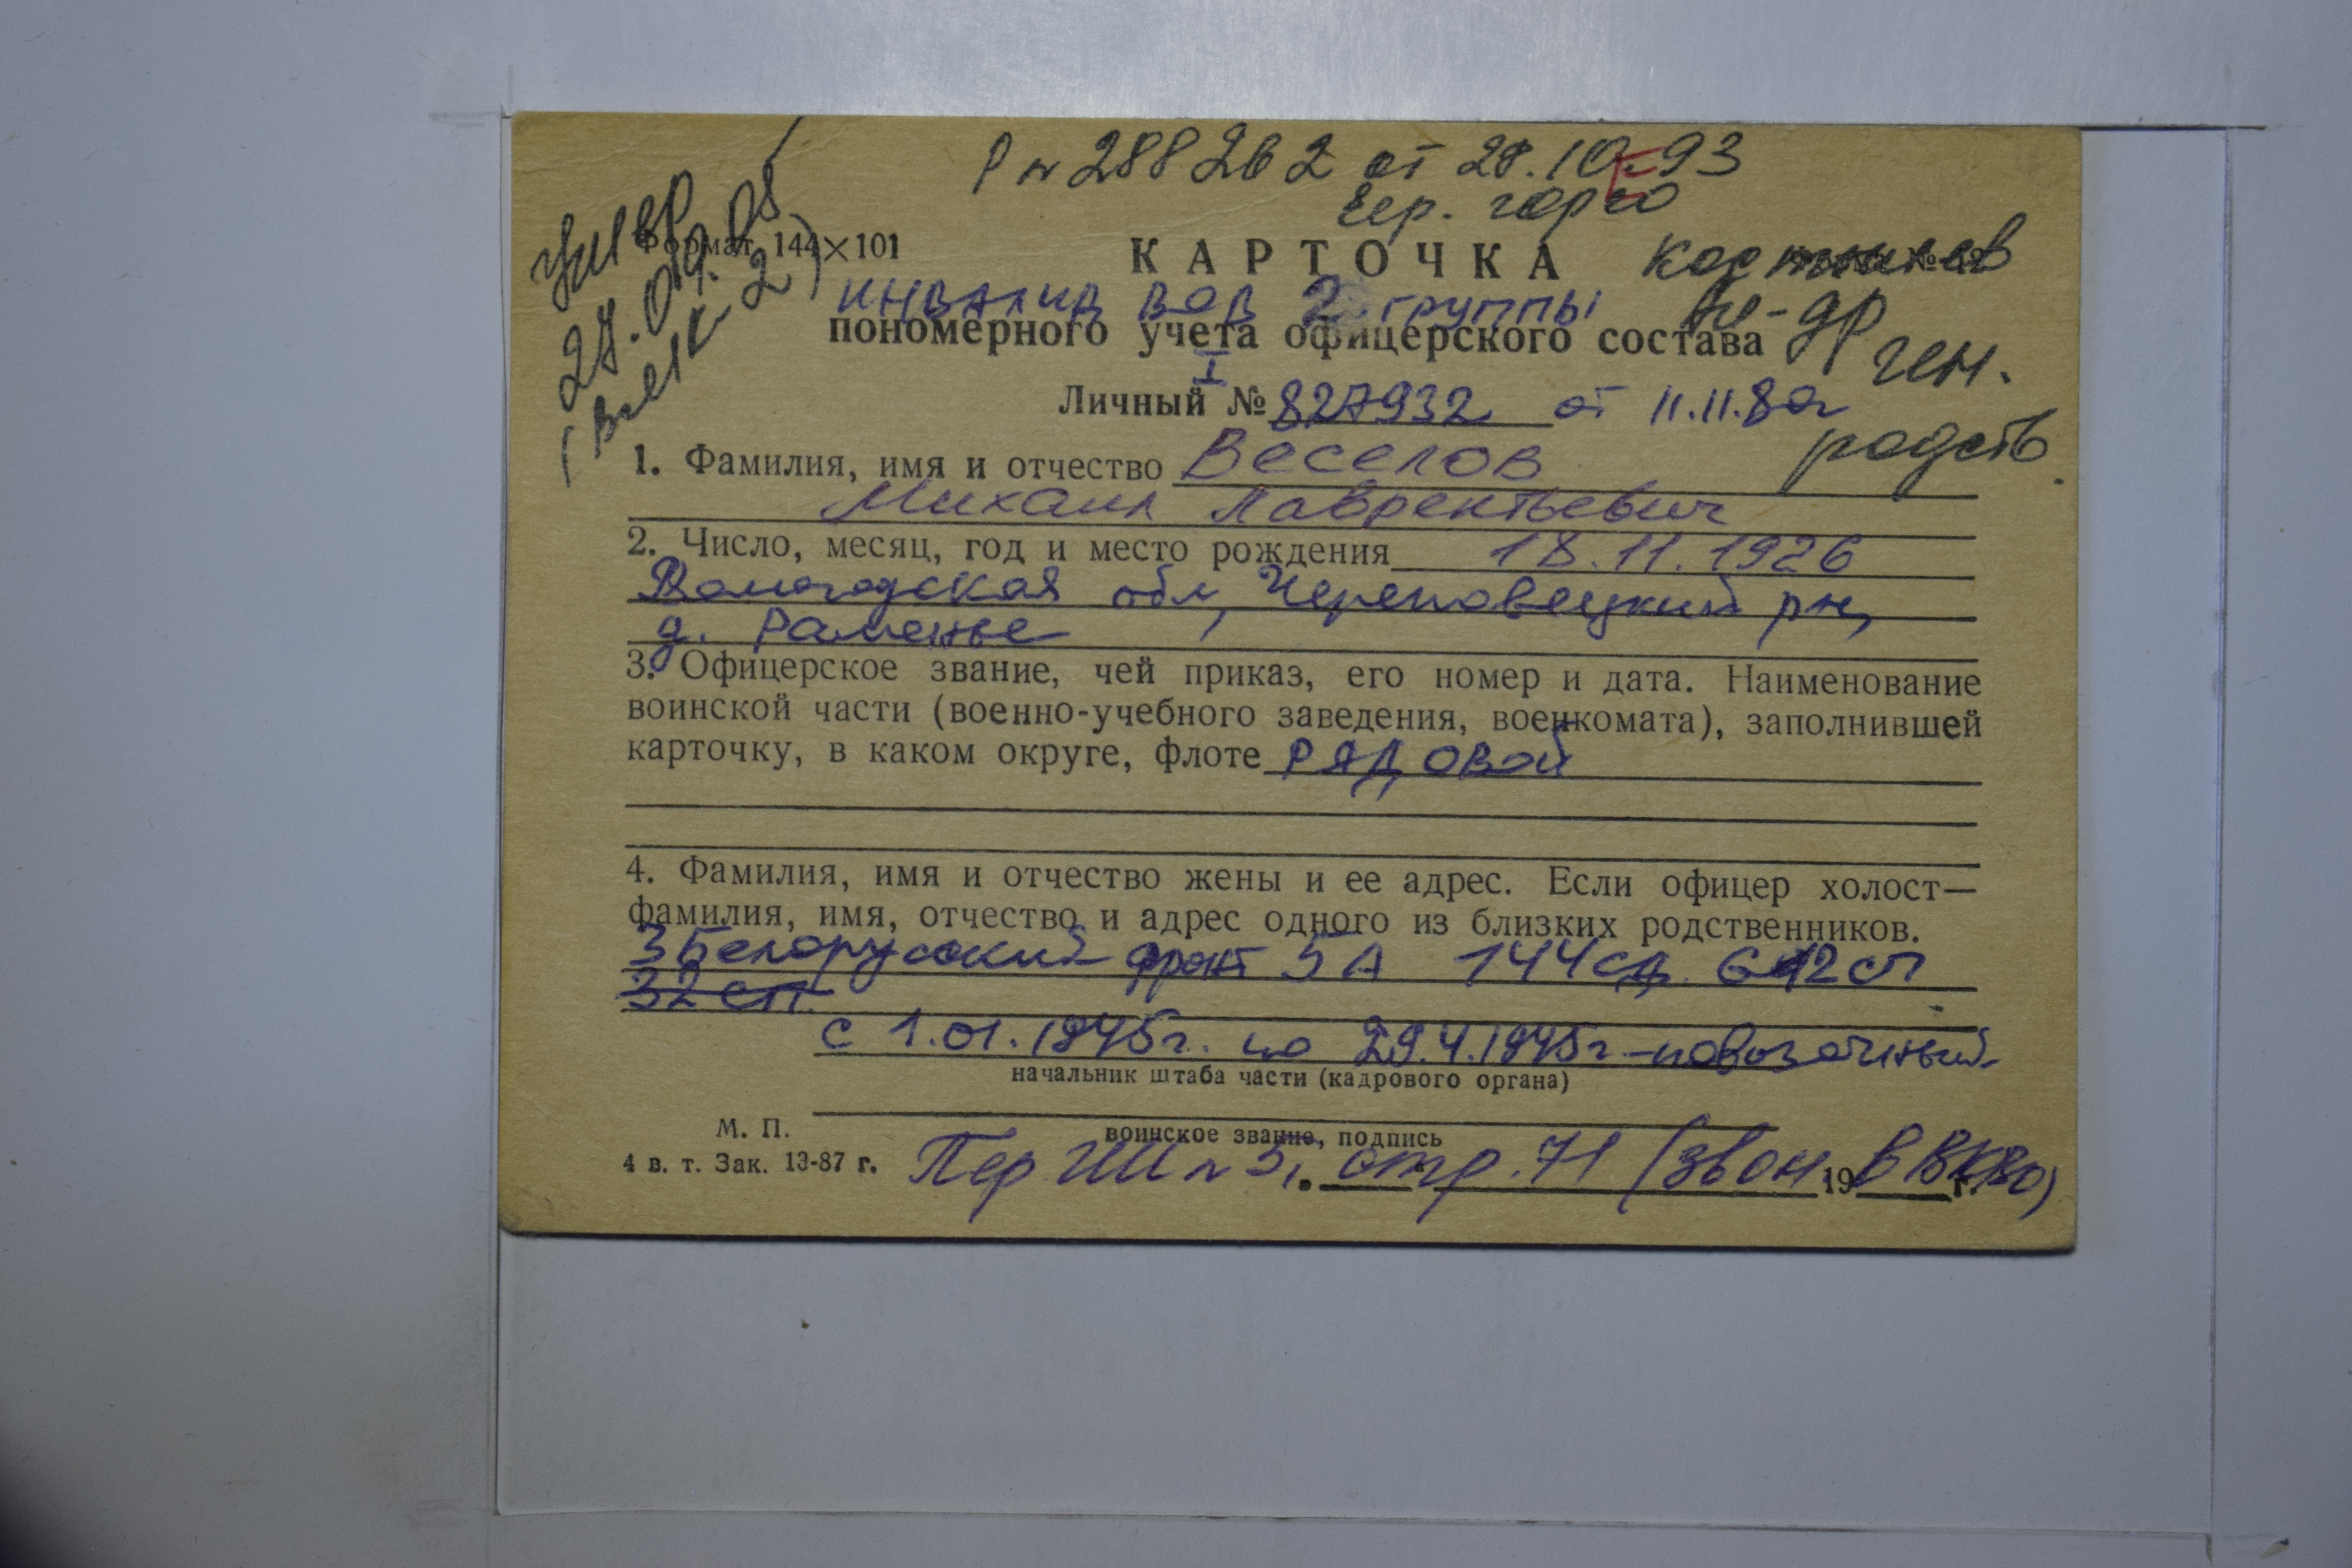 Р № 288262 от 28.10.93
Чер. горво
умер
27.09.08
Формат 144×101
КАРТОЧКА
инвалид ВОВ 2 группы
пономерного учета офицерского состава
ген.
I
Личный № 827932 от 11.11.80г
родств.
1. Фамилия, имя и отчество Веселов
Михаил Лаврентьевич
2. Число, месяц, год и место рождения 18.11.1926
Вологодская обл, Череповецкий рн,
д. Раменье
3. Офицерское звание, чей приказ, его номер и дата. Наименование
воинской части (военно-учебного заведения, военкомата), заполнившей
карточку, в каком округе, флоте РЯДОВОЙ
4. Фамилия, имя и отчество жены и ее адрес. Если офицер холост—
фамилия, имя, отчество и адрес одного из близких родственников.
3 Белорусский фронт 5А 144сд 612 сп
32 сп
с 1.01.1945г. по 29.4.1945г.-повозочный
начальник штаба части (кадрового органа)
М. П.
воинское звание, подпись
4 в. т. Зак. 13-87 г.
Пер ГШ № 5, стр. 71 (звон в ВКВО)
19 г.